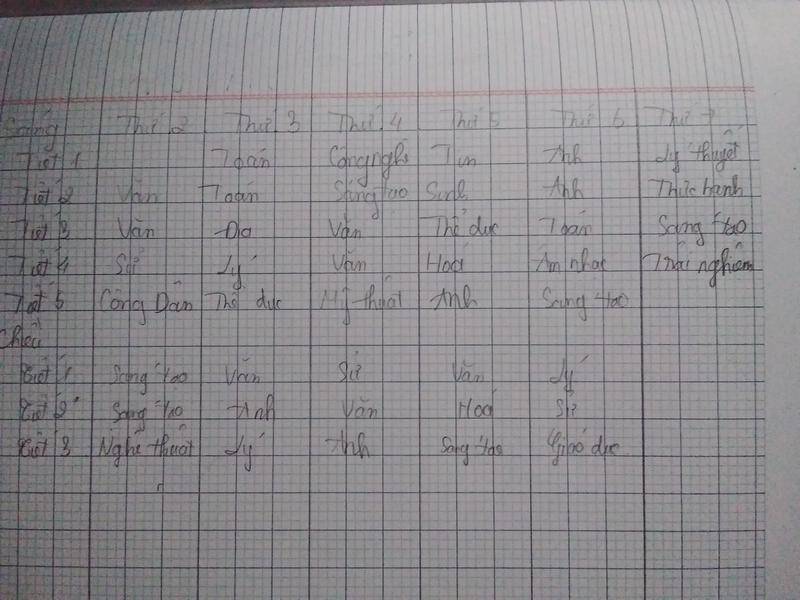 Sáng Thứ 2 Thứ 3 Thứ 4 Thứ 5 Thứ 6 Thứ 7
Tiết 1 Toán Công nghệ Tin Anh Lý thuyết
Tiết 2 Văn Toán Sáng tạo Sinh Anh Thực hành
Tiết 3 Văn Địa Văn Thể dục Toán Sáng tạo
Tiết 4 Sử Lý Văn Hoá Âm nhạc Trải nghiệm
Tiết 5 Công Dân Thể dục Mỹ thuật Anh Sáng tạo
Chiều
Tiết 1 Sáng tạo Văn Sử Văn Lý
Tiết 2 Sáng tạo Anh Văn Hoá Sử
Tiết 3 Nghệ thuật Lý Anh Sáng tạo Giáo dục